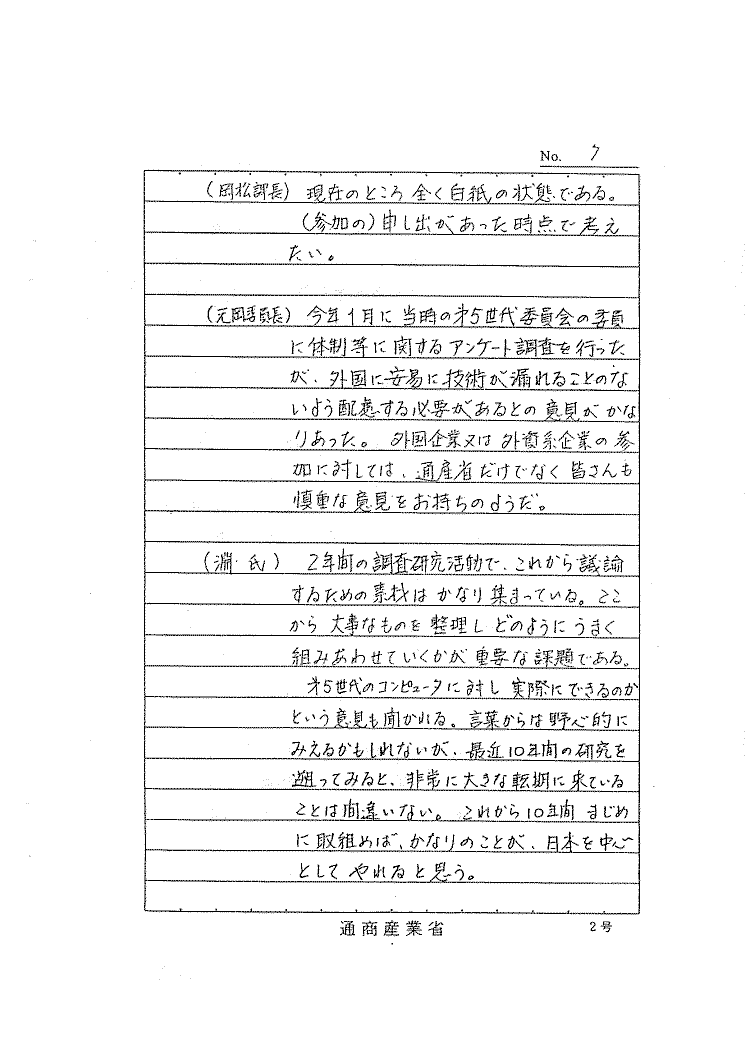 No. 7
(岡松課長) 現在のところ 全く白紙の状態である。
(参加の)申し出があった時点で考え
たい。
(元岡委員長) 今年1月に当時の第5世代委員会の委員
に体制等に関するアンケート調査を行った
が、外国に安易に技術が漏れることのな
いよう配慮する必要があるとの意見がかな
りあった。 外国企業又は外資系企業の参
加に対しては、通産省だけでなく皆さんも
慎重な意見をお持ちのようだ。
(淵 氏) 2年間の調査研究活動で、これから議論
するための素材はかなり集まっている。ここ
から大事なものを整理し どのようにうまく
組みあわせていくかが重要な課題である。
第5世代のコンピュータに対し 実際にできるのか
という意見も聞かれる。言葉からは野心的に
みえるかもしれないが、最近10年間の研究を
遡ってみると、非常に大きな転期に来ている
ことは間違いない。 これから10年間 まじめ
に取組めば、かなりのことが、日本を中心
として やれると思う。
通商産業省 2号